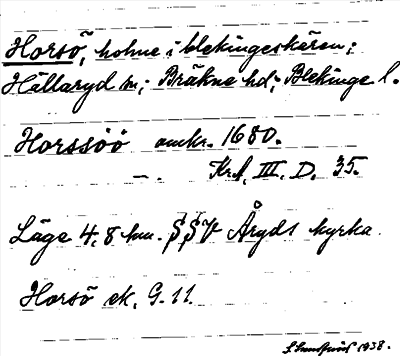 Horsö, holme i blekingeskären;
Hällaryd sn; Bräkne hd; Blekinge l.
Horssöö omkr. 1680.
—. KrA, III. D. 35.
Läge 4,8 km. SSV Åryds kyrka.
Horsö ek. G. 11.
1938.